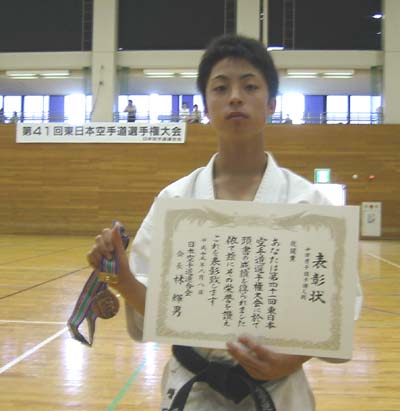 第41回東日本空手道選手権大会
日本空手道連合会
表彰状
優勝賞
あなたは第四十一回東日本
空手道選手権大会に於て
頭書の成績を得られました
依て茲にその栄誉を讃え
これを表彰致します
平成十九年八月八日
日本空手道連合会
会長 林 輝男